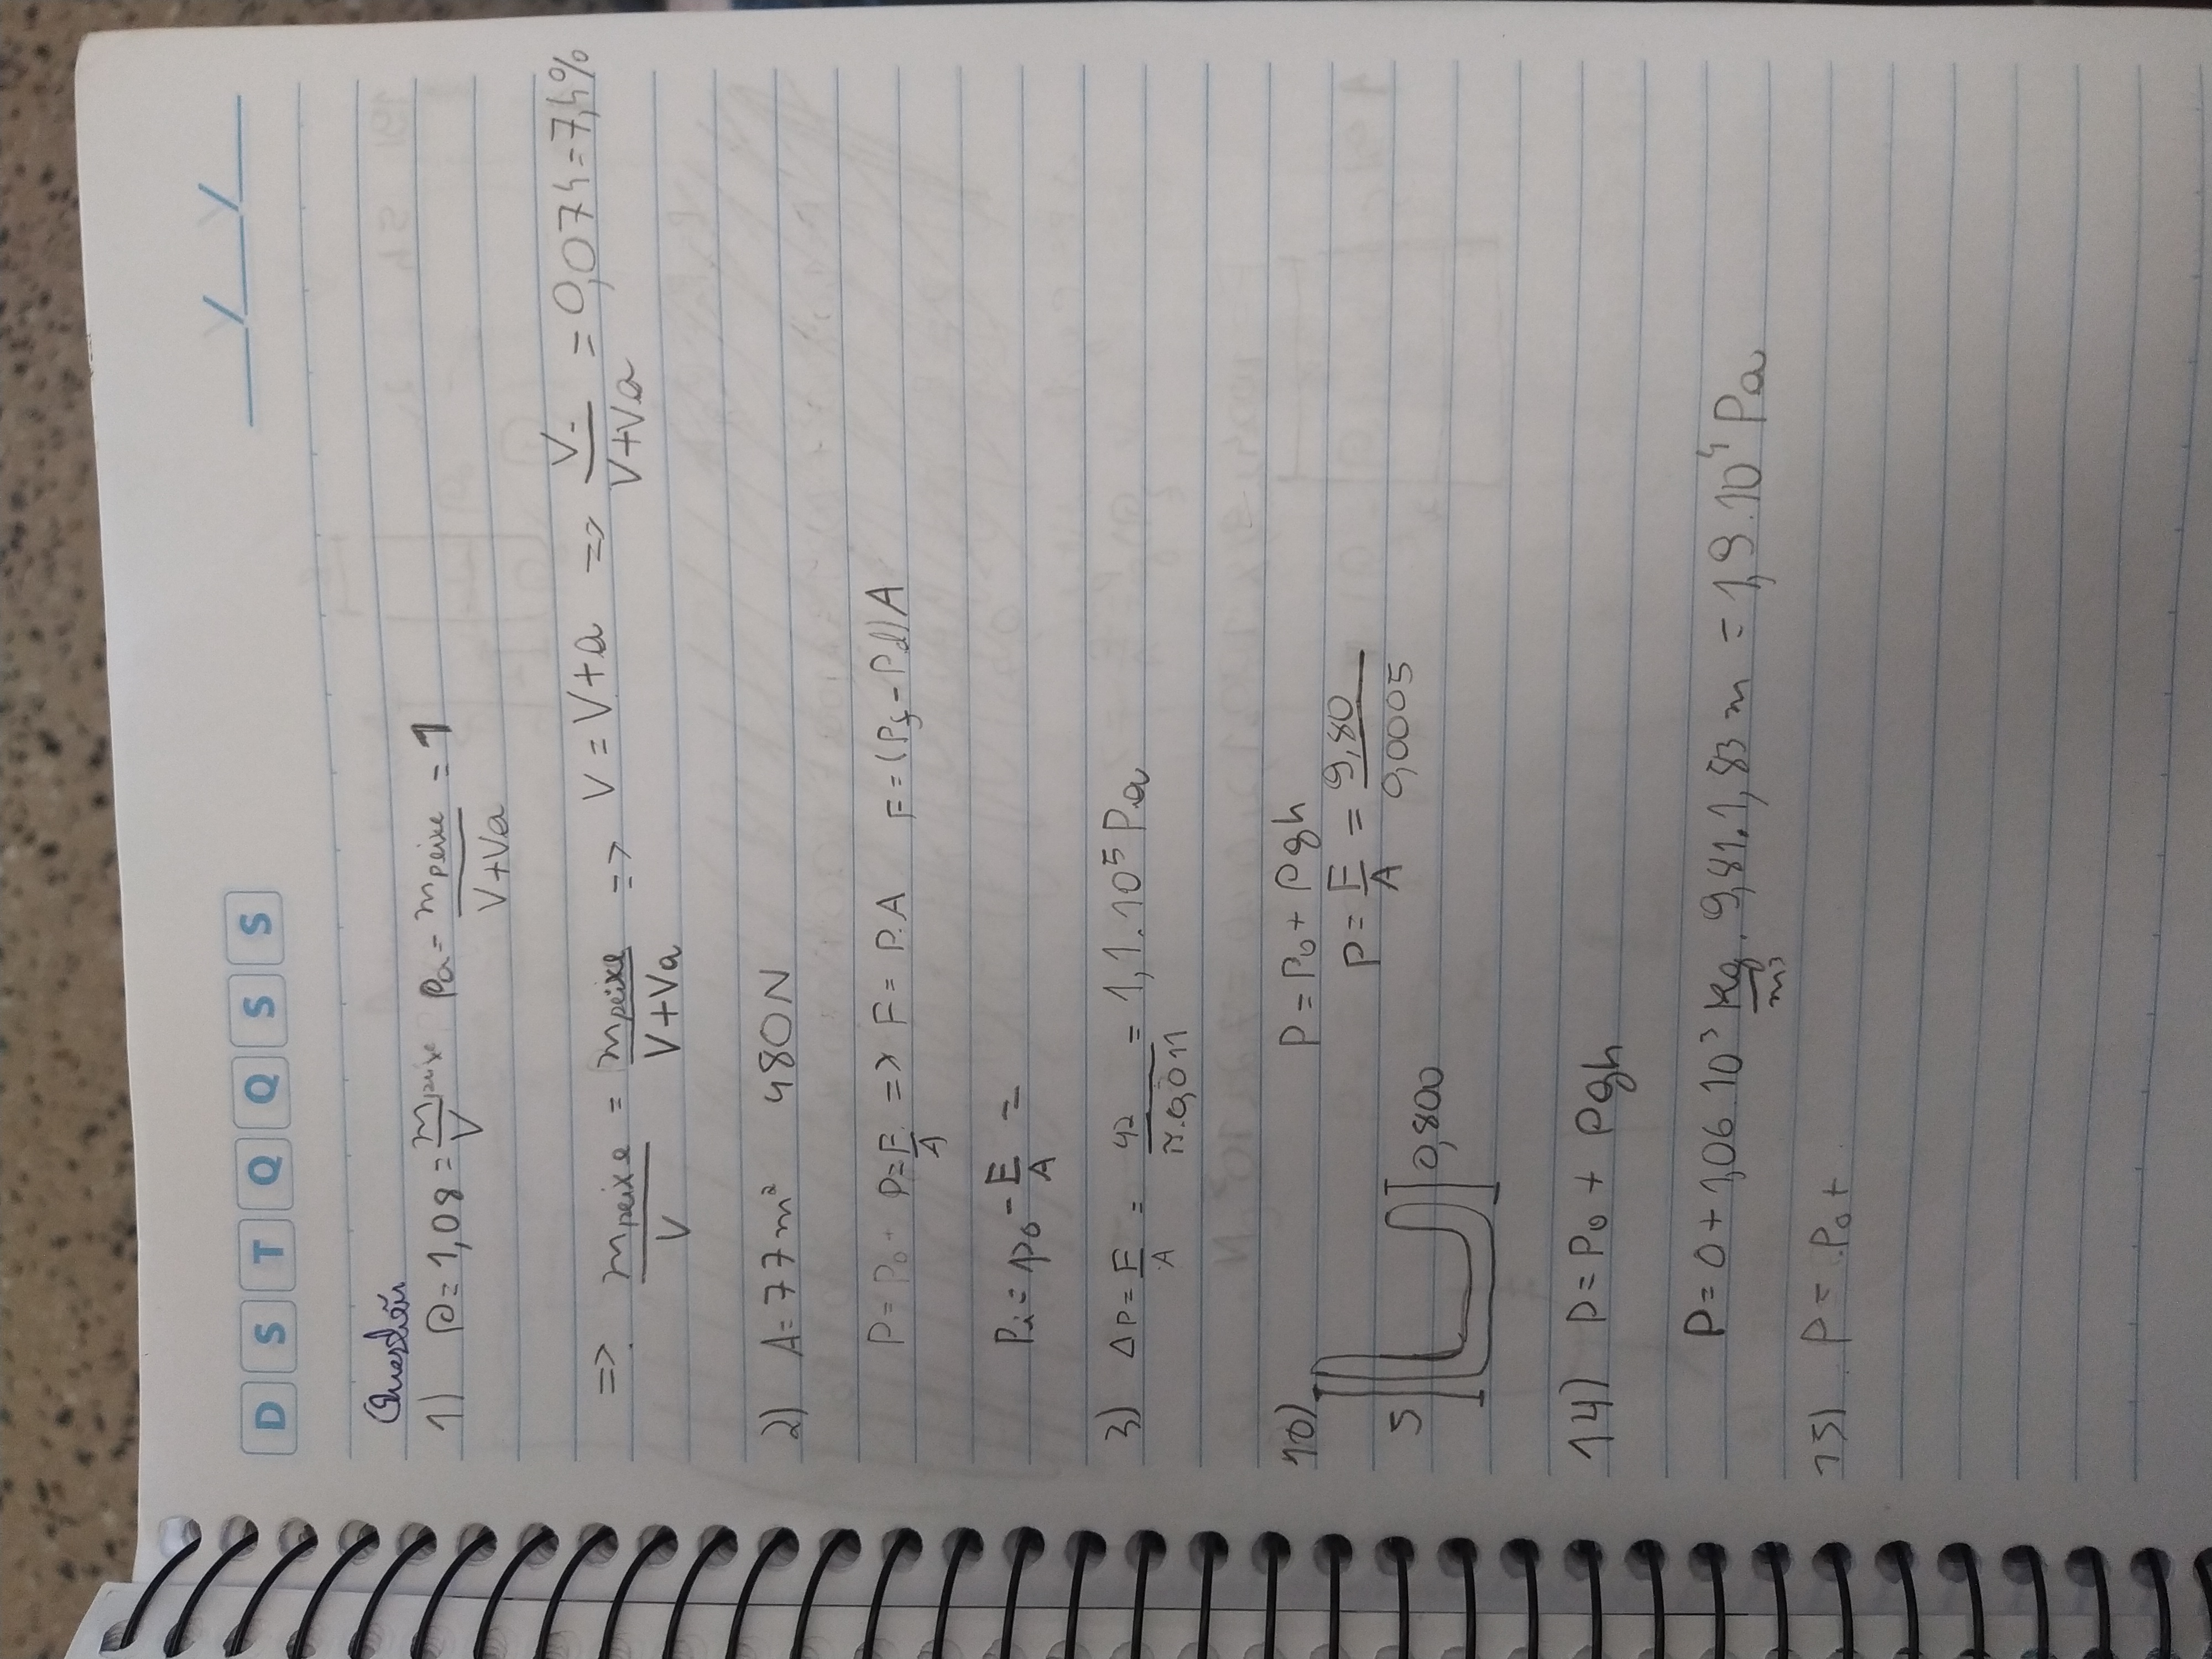 D S T Q Q S S
___/___/___
Questão
1) ρ = 1,08 = mpeixe/V ρa = mpeixe/(V+Va) = 1
=> mpeixe/V = mpeixe/(V+Va) => V = V+a => V-/(V+Va) = 0,074 = 7,4%
2) A = 77m² 480N
P = P₀ + P = F/A => F = P.A F = (Pf - Pd)A
Pi = p₀ - F/A =
3) ΔP = F/A = 42/(π.0,011) = 1,1.10⁵ Pa
10) P = P₀ + ρgh
P = F/A = 9,80/0,0005
5 0,800
14) P = P₀ + ρgh
P = 0 + 1,06.10³ Kg/m³ . 9,81.1,83m = 1,9.10⁴ Pa
15) P = P₀ +